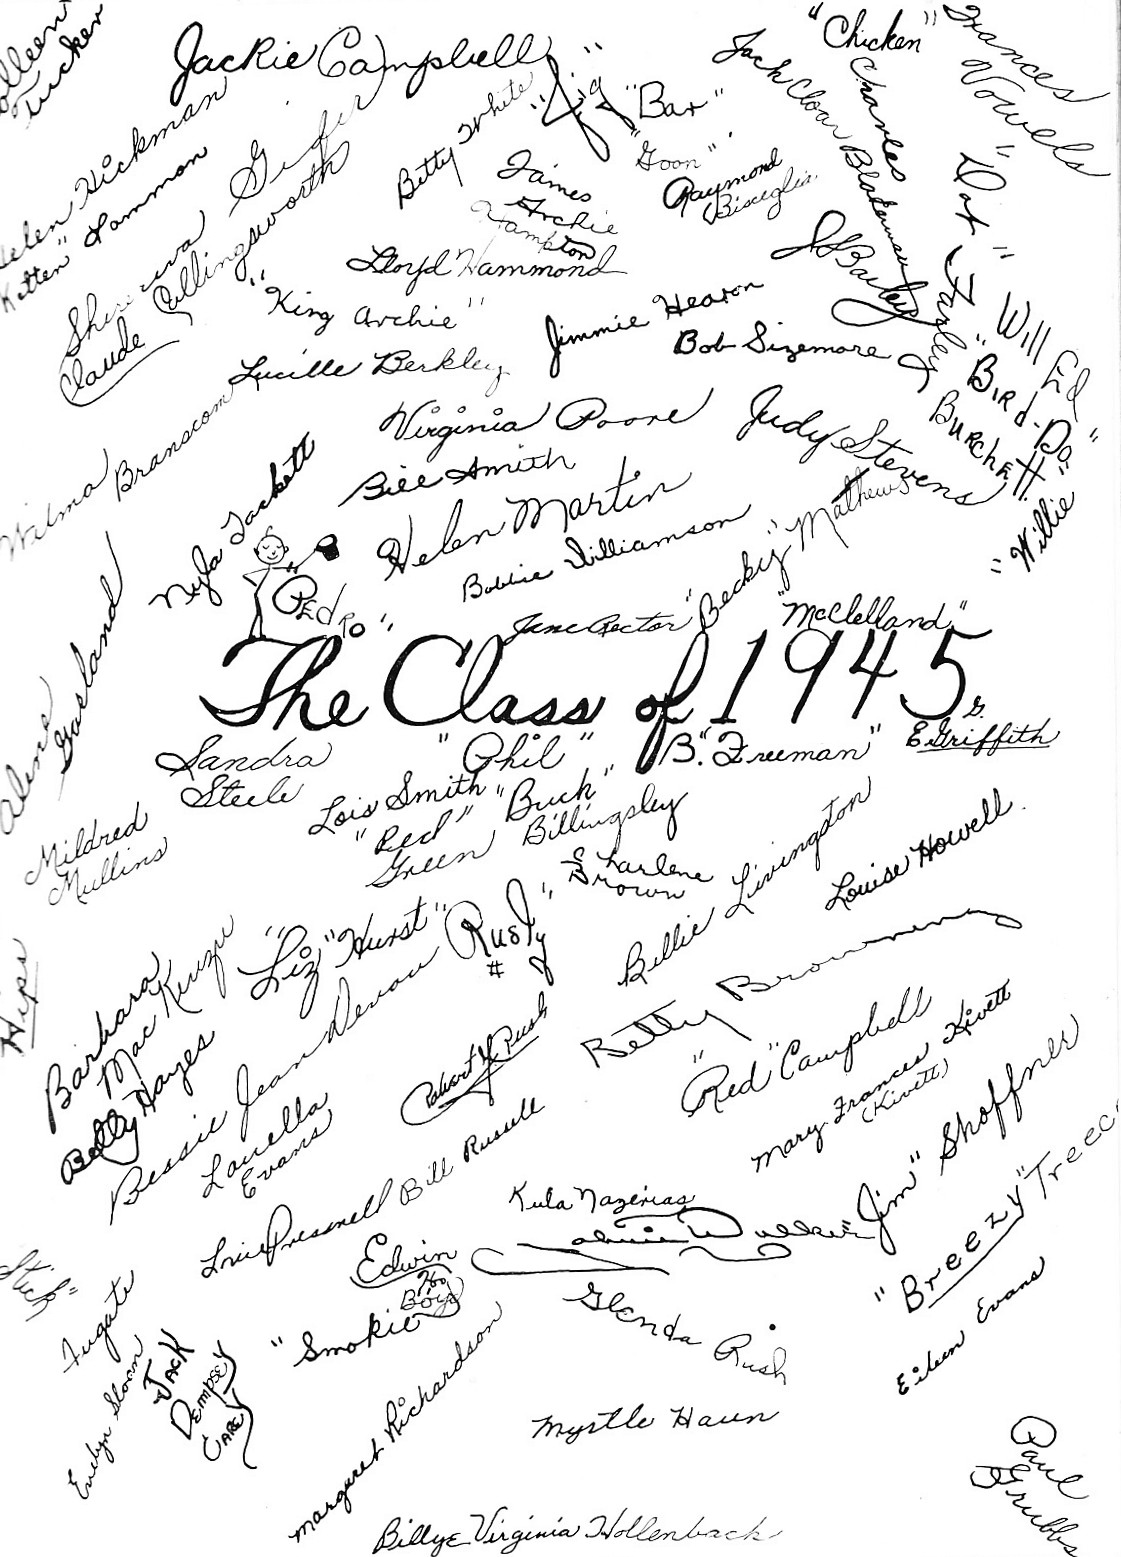 Tucker
Jackie Campbell
"Chicken"
Frances
Vowels
Charles
Jack Cloar
"Jig"
"Bar"
Betty White
"Goon"
Raymond
Bisceglia
James
Archie
Hampton
Hickman
"Kitten" Hammon
Lloyd Hammond
"King Archie"
Claude Collingsworth
Jimmie Hearon
Bob Sizemore
"Dot"
Farley
"Will Ed"
"Bird-Do
Burchett
"Willie
Lucille Berkley
Wilma Branscom
Virginia Poore
Judy Stevens
Bill Smith
Helen Martin
Nyla Tackett
"Pedro"
Bobbie Williamson
"Becky" Mathews
Jane Rector
"McClelland"
The Class of 1945
Alene Gosland
Sandra
Steele
"Phil"
B. "Freeman"
E. G. Griffith
Lois Smith
"Buck"
Billingsley
"Red"
Green
Mildred
Mullins
Charlene
Brown
Billie Livingston
Louise Howell.
"Liz" Hurst
"Rusty"
Barbara
Mac
Betty Hayes
Bessie Jean Devou
Hips
Betty Browning
Robert Y Rush
"Red" Campbell
Mary Frances Kivett
(Kivett)
Louella
Evans
Bill Russell
Presnell
Kula Nazerias
"Jim" Shoffner
"Breezy" Treece
Edwin
Boyd
"Smokie"
Glenda Rush
Eileen Evans
Fugate
Evelyn Sloan
Jack
Dempsey
Carey
Margaret Richardson
Myrtle Haun
Paul
Grubbs
Billye Virginia Hollenback